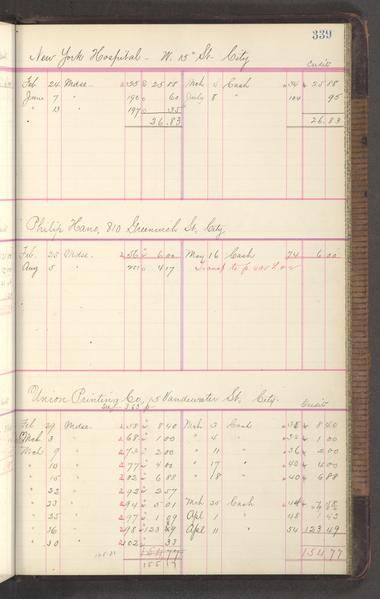 339
New York Hospital - W. 15" St. City
Credit
Feb. 24 Mdse. 25 25 88 Mch 4 Cash 34 25 88
June 7 " 190 60 July 8 " 104 95
" 13 " 197 35
26.83 26.83
Philip Hano, 810 Greenwich St. City
Feb. 25 Mdse. 56 6 00 May 16 Cash 74 6 00
Aug 5 " 4 17 Transf to p
Union Printing Co, 15 Vandewater St. City.
Credit
Feb 29 Mdse. 58 8 40 Mch 3 Cash 8 40
Mch 3 " 68 1 00 " 4 " 34 1 00
Mch 9 " 2 00 " 11 " 36 2 00
" 10 " 77 4 00 " 17 " 40 4 00
" 15 " 6 88 " 18 " 40 6 88
" 22 " 92 2 57
" 23 " 94 5 01 Mch 25 Cash 44
" 25 " 97 1 09 Apl 1 " 48
" 26 " 98 123 49 Apl 11 " 54 123 49
" 30 " 102 33
154 77 154 77
155 17